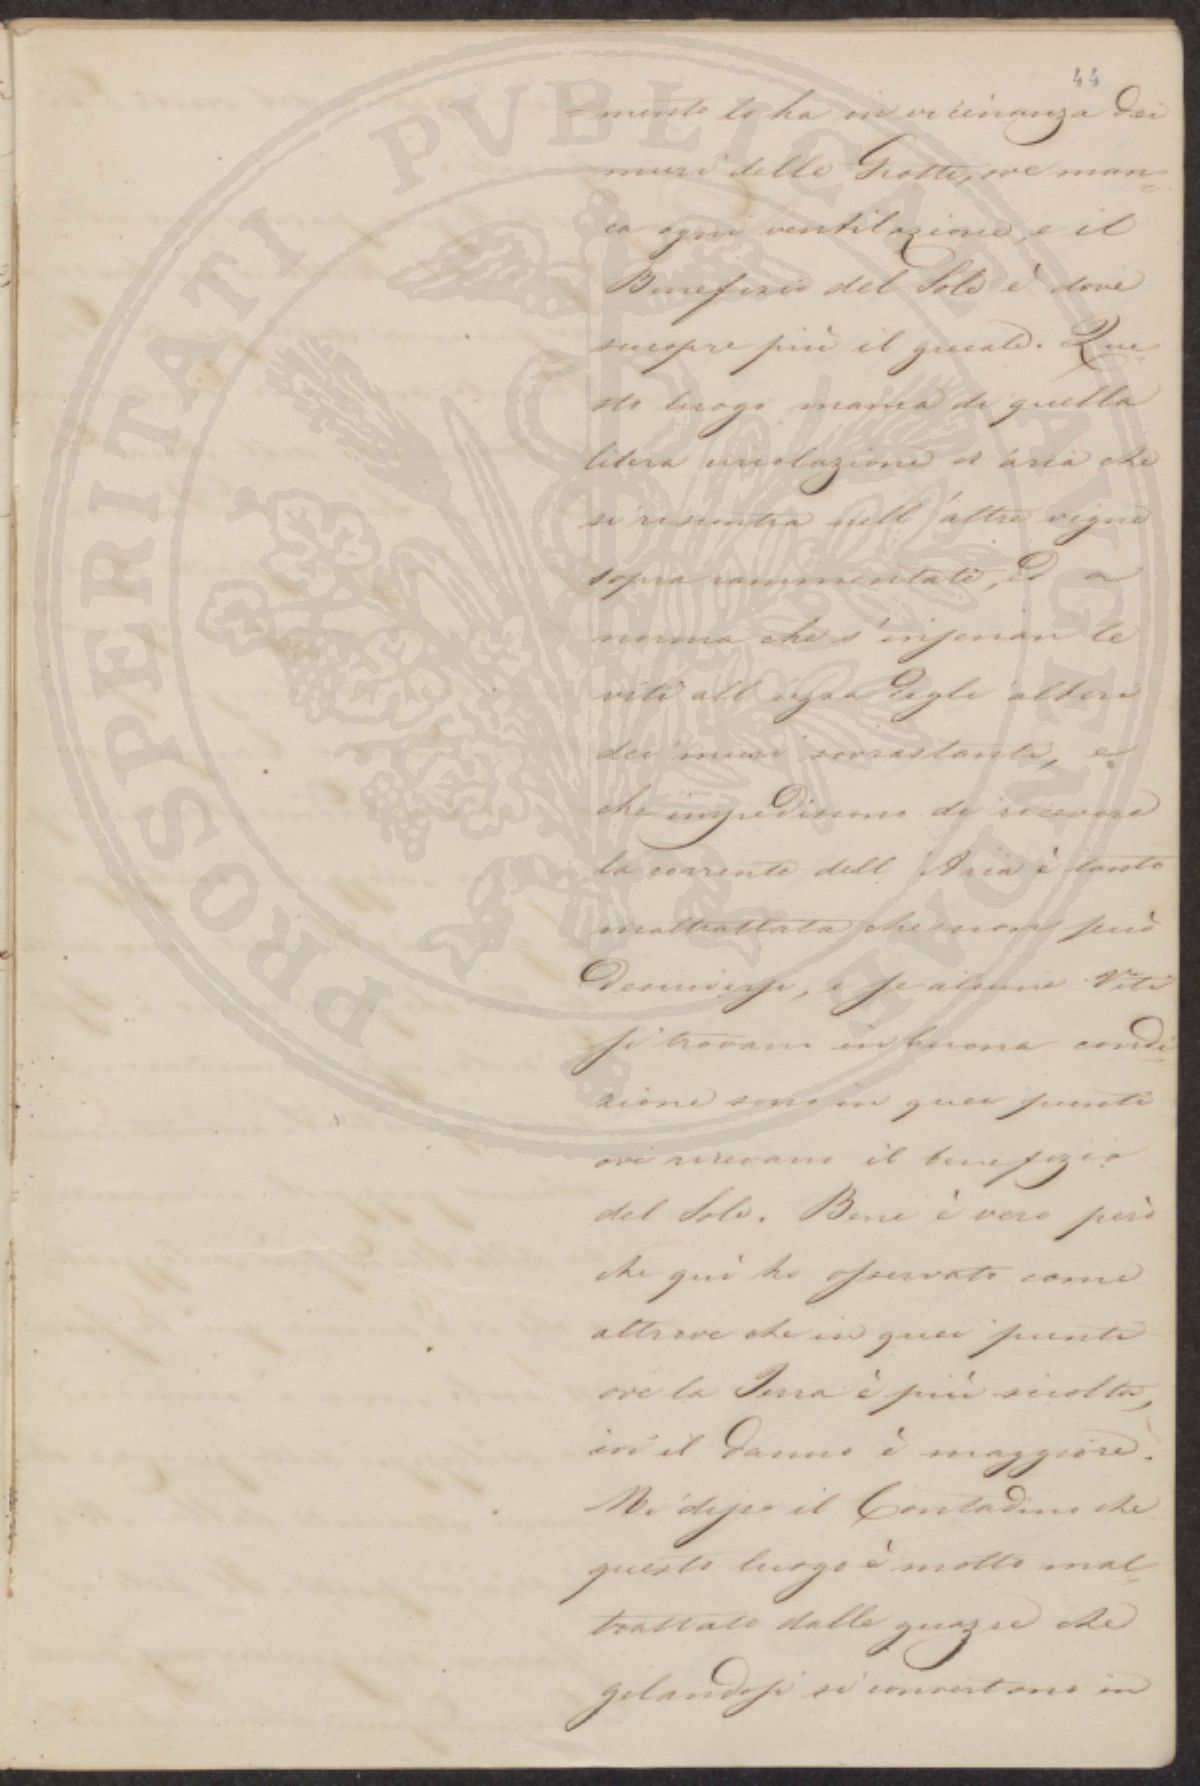 44
=mento lo ha in vicinanza dei
muri delle Grotte, ove man=
ca ogni ventilazione, e il
Benefizio del Sole è dove
scuopre più il grecale. Que=
sto luogo manca di quella
libera circolazione d'aria che
si riscontra nell'altre vigne
sopra rammentate, ed a
norma che s'inferian le
viti all'uggia degli alberi
dei muri sovrastanti, e
che impediscono di ricevere
la corrente dell'Aria è tanto
maltrattata che non può
descriversi, e se alcune Viti
si trovano in buona condi=
zione sono in quei punti
ove ricevano il benefizio
del Sole. Bene è vero però
che quì ho osservato come
altrove che in quei punti
ove la Terra è più sciolta,
ivi il danno è maggiore.
Mi disse il Contadino che
questo luogo è molto mal=
trattato dalle guazze che
gelandosi si convertono in
PROSPERITATI PVBLICAE AVGENDAE